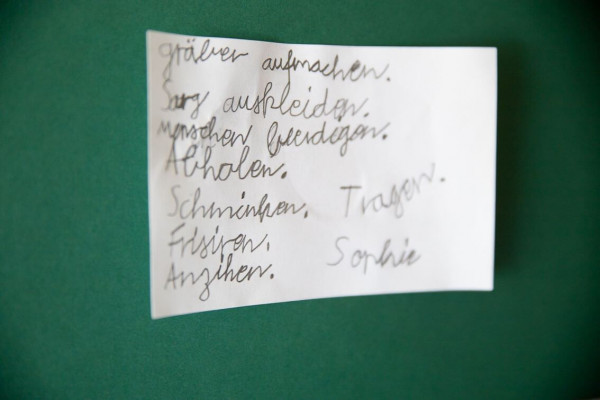 gräber aufmachen.
Sarg auskleiden.
menschen beerdigen.
Abholen.
Schminken. Tragen.
Frisiren. Sophie
Anzihen.